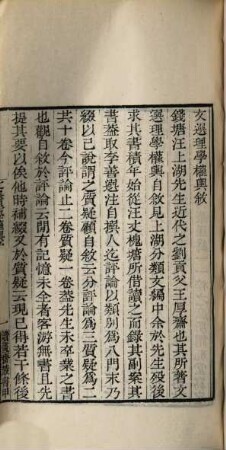 文選理學權輿敘
錢塘汪上湖先生近代之劉貢父王厚齋也其所著文
選理學權輿自敘見上湖分類文編中余於先生歿後
求其書積年始從汪丈槐塘所借讀之而錄其副案其
書蓋取李善選注自撰人迄評論以類別爲八門末乃
綴以己說謂之質疑顧自敘云分評論爲三質疑爲二
共十卷今評論止二卷質疑一卷蓋先生未卒業之書
也觀自敘於評論云間有記憶未全者客游無書且先
提其要以俟他時補綴又於質疑云現已得若干條後